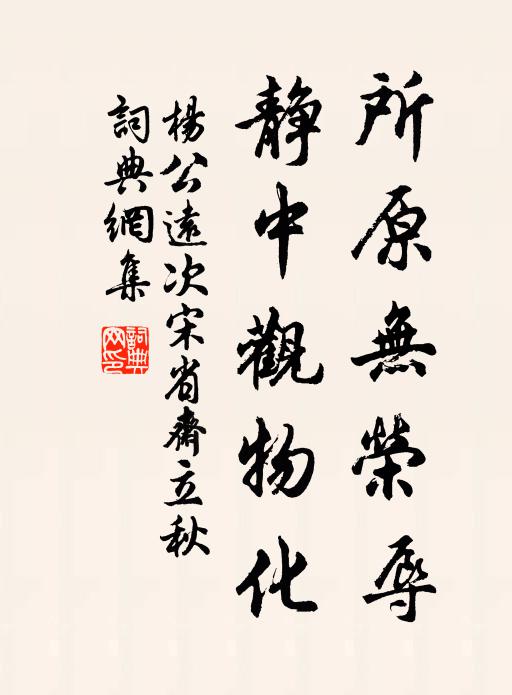 所原無榮辱
静中觀物化
楊公遠次宋省齋立秋
詞典網集
詞典網印